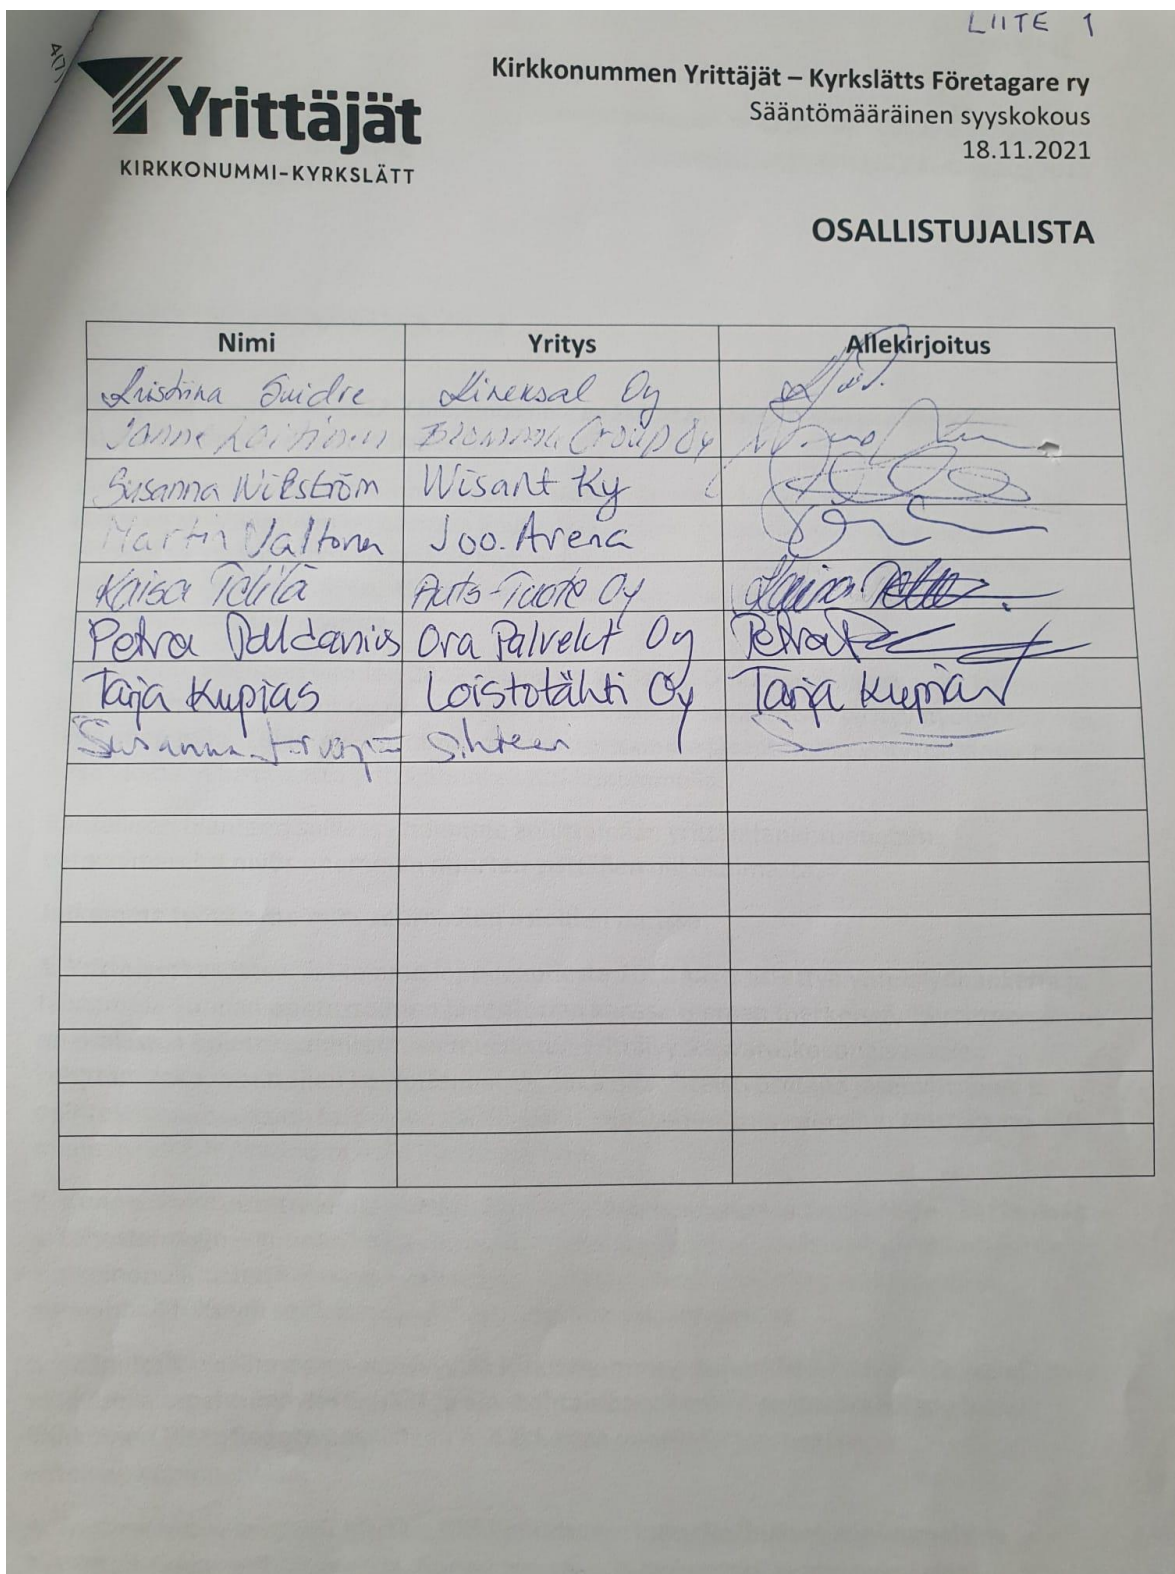 LIITE 1
4(7)
Yrittäjät
KIRKKONUMMI-KYRKSLÄTT
Kirkkonummen Yrittäjät – Kyrkslätts Företagare ry
Sääntömääräinen syyskokous
18.11.2021
OSALLISTUJALISTA
Nimi Yritys Allekirjoitus
Kristiina Suidre Kineksal Oy
Janne Laitinen Group Oy
Susanna Wikström Wisant Ky
Martin Valtonen Joo. Arena
Kaisa Tolilä Auts-Tuote Oy Kaisa
Petra Paldanius Ora Palvelut Oy Petra
Tarja Kupias Loistotähti Oy Tarja Kupias
Susanna Sihteeri